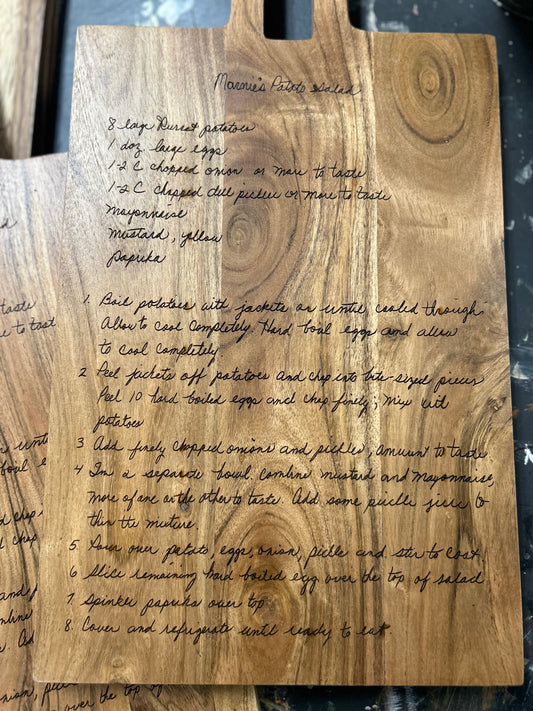 Marnie's Potato Salad
8 large Russet potatoes
1 doz. large eggs
1-2 C chopped onion or more to taste
1-2 C chopped dill pickles or more to taste
Mayonnaise
Mustard, yellow
Paprika
1. Boil potatoes with jackets on until cooled through.
Allow to cool completely. Hard boil eggs and allow
to cool completely
2 Peel jackets off potatoes and chop into bite-sized pieces
Peel 10 hard boiled eggs and chop finely; mix with
potatoes
3 Add finely chopped onions and pickles, amount to taste
4 In a separate bowl combine mustard and mayonnaise,
more of one or the other to taste. Add some pickle juice to
thin the mixture
5. Pour over potato, eggs, onion, pickle and stir to coat
6 Slice remaining hard boiled egg over the top of salad
7. Sprinkle paprika over top
8. Cover and refrigerate until ready to eat.
taste
more to tast
over the top of